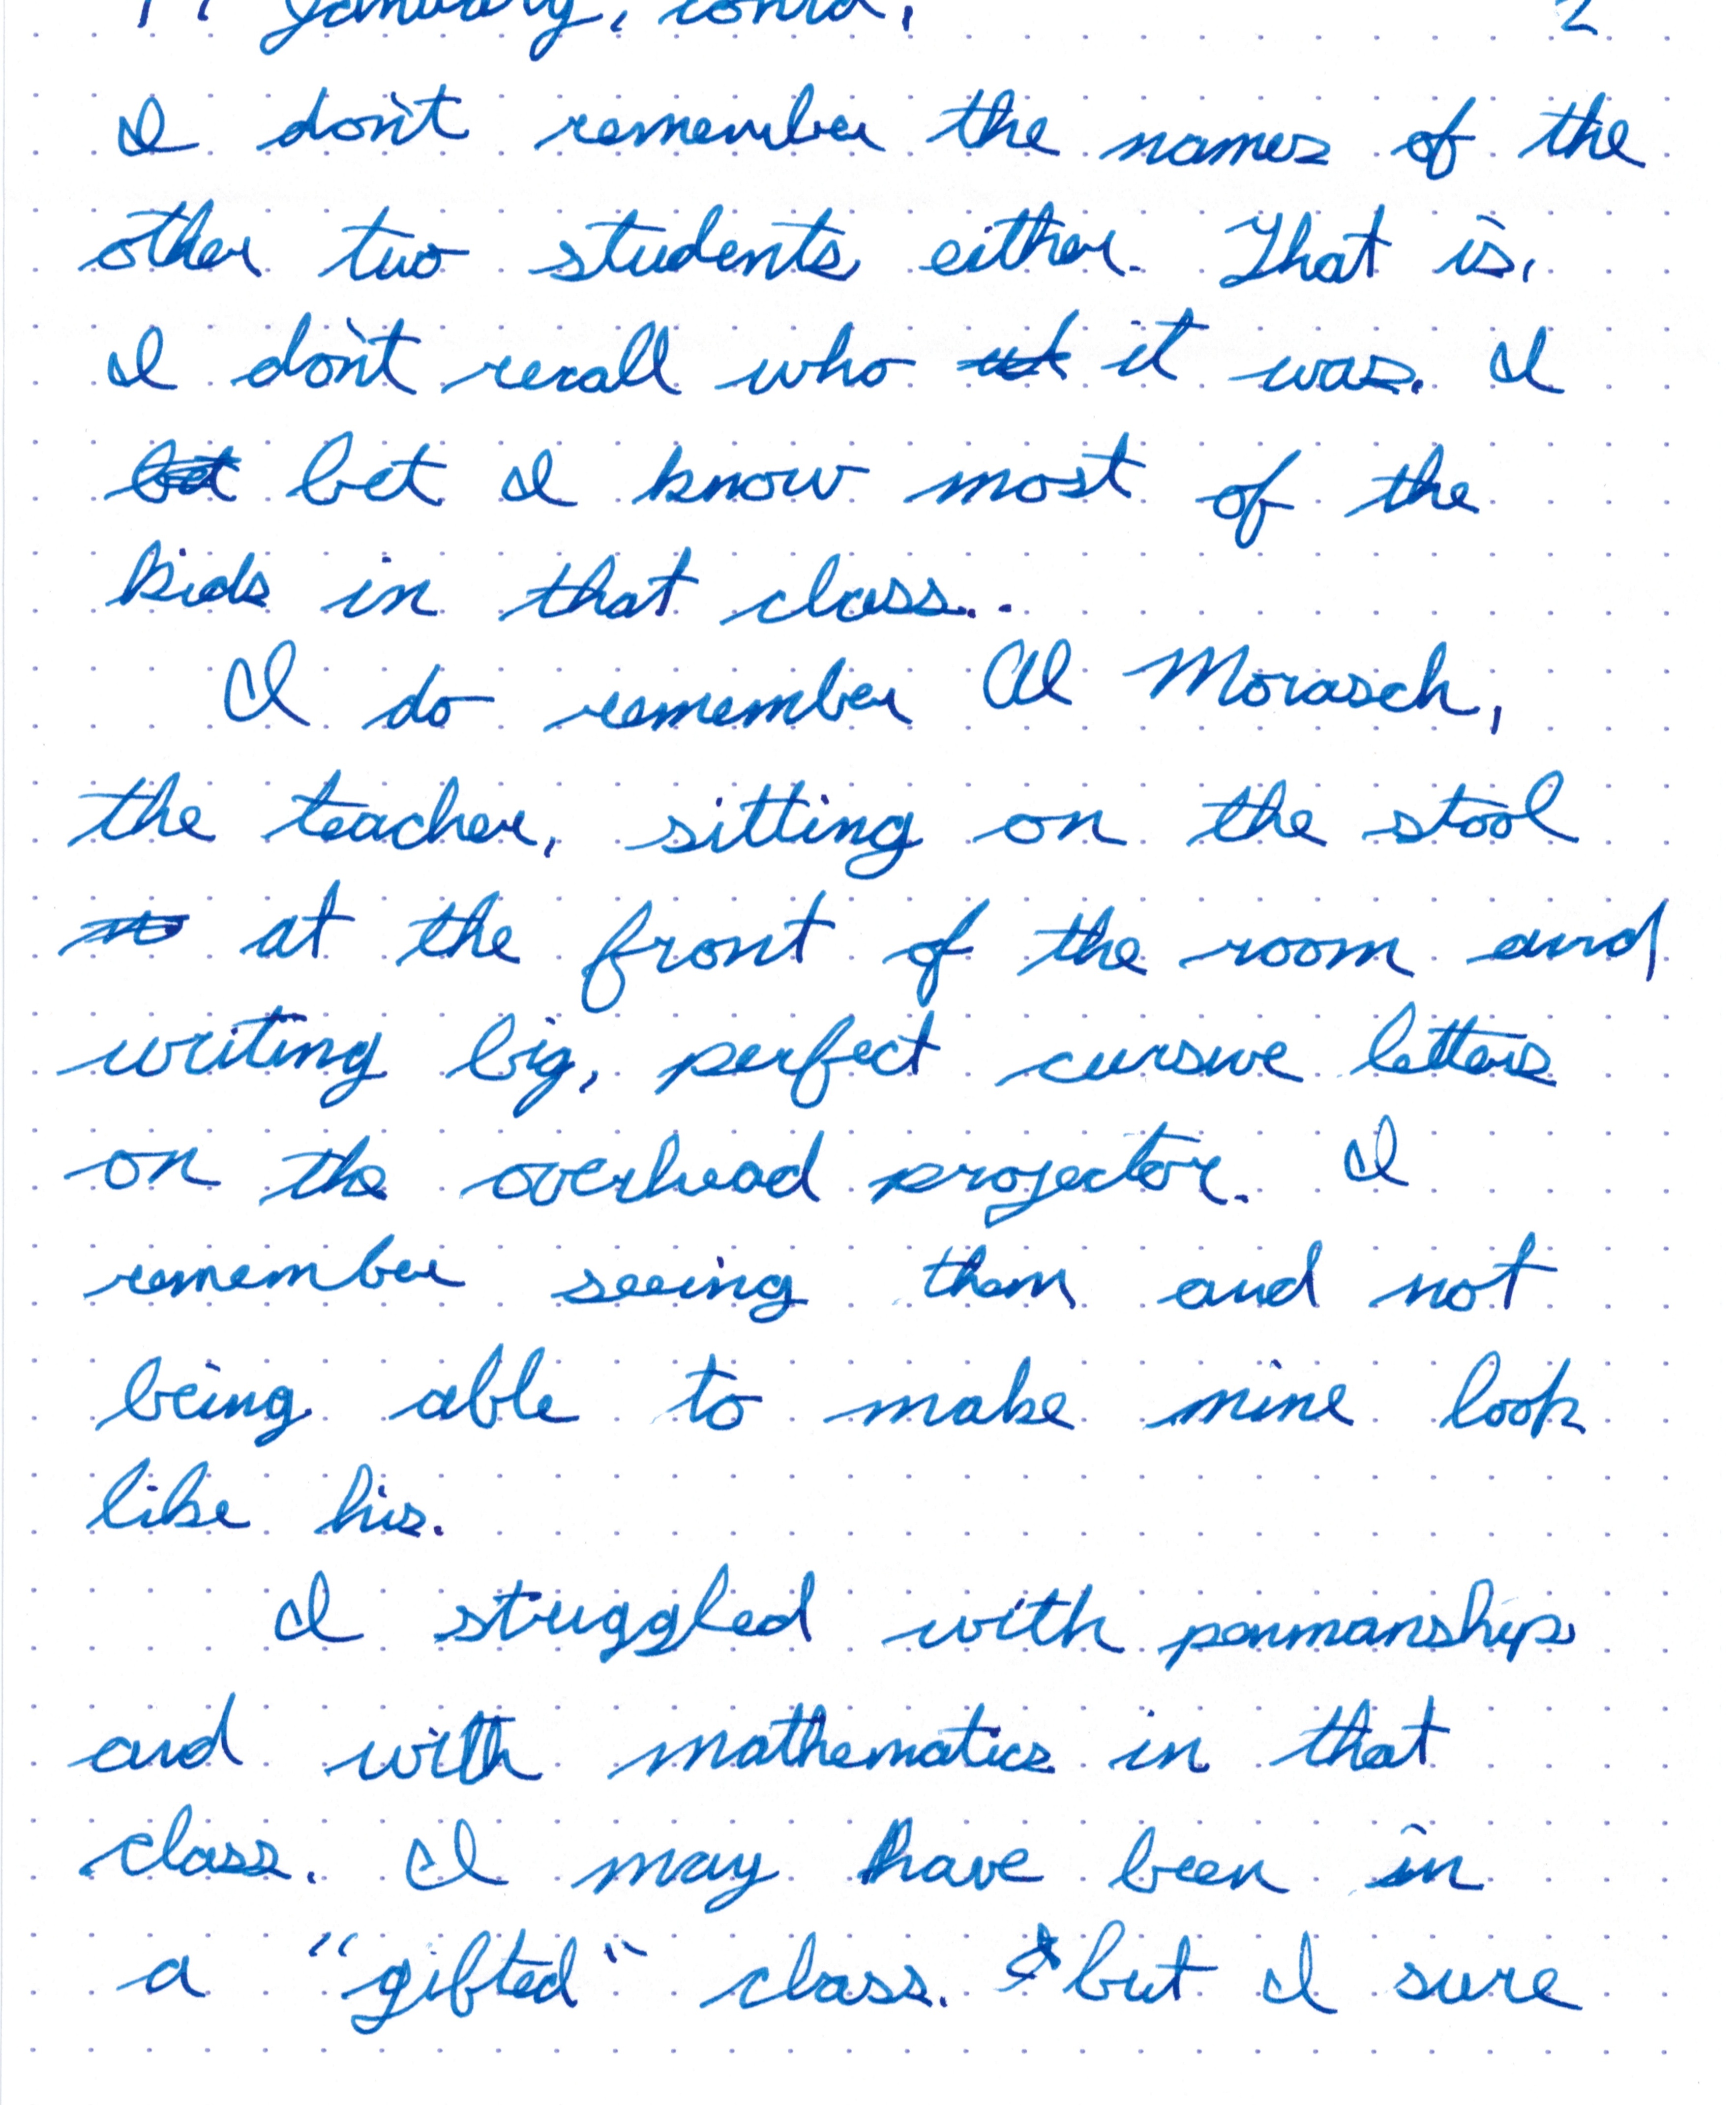 January, contd. 2
I don't remember the names of the
other two students either. That is,
I don't recall who it was. I
bet I know most of the
kids in that class..
I do remember Al Morasch,
the teacher, sitting on the stool
at the front of the room and
writing big, perfect cursive letters
on the overhead projector. I
remember seeing them and not
being able to make mine look
like his.
I struggled with penmanship
and with mathematics in that
class. I may have been in
a "gifted" class. but I sure